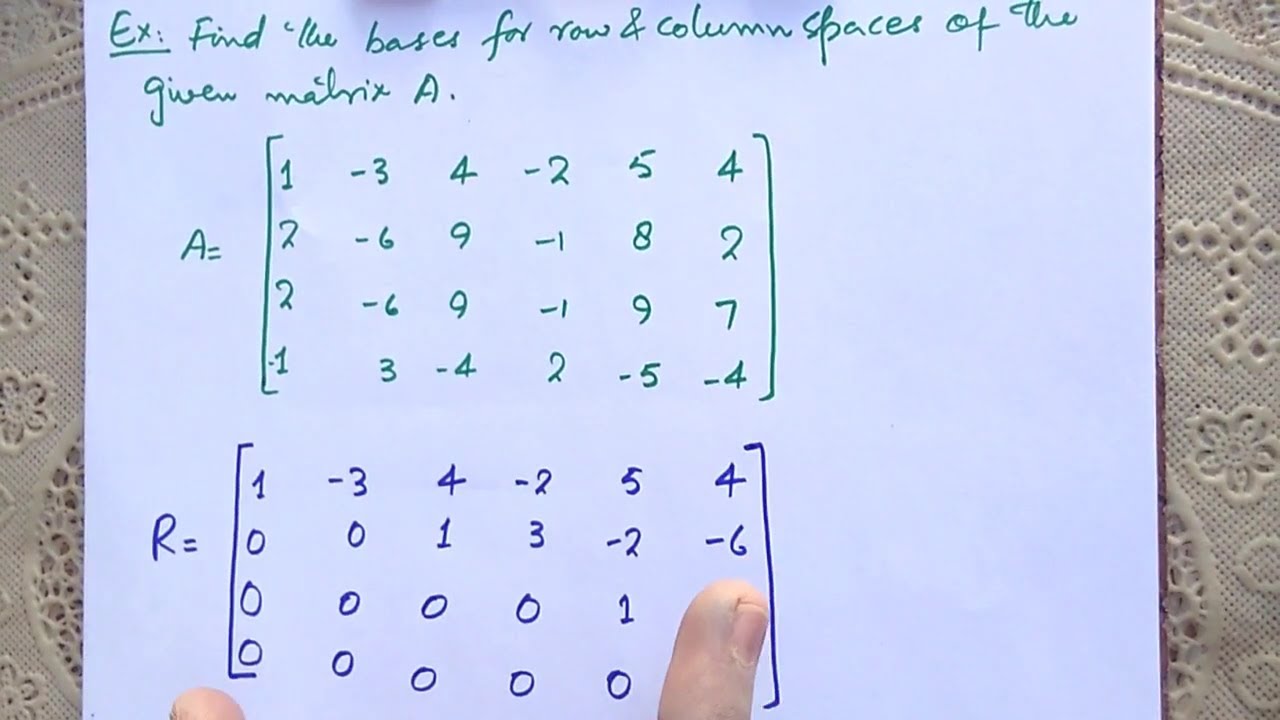 Ex: Find the bases for row & column spaces of the
given matrix A.
A= [1 -3 4 -2 5 4
2 -6 9 -1 8 2
2 -6 9 -1 9 7
-1 3 -4 2 -5 -4]
R= [1 -3 4 -2 5 4
0 0 1 3 -2 -6
0 0 0 0 1
0 0 0 0 0]